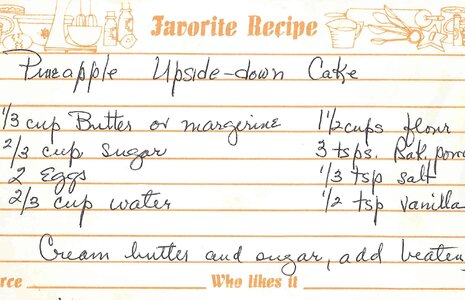 Favorite Recipe
Pineapple Upside-down Cake
1/3 cup Butter or margerine 1 1/2 cups flour
2/3 cup sugar 3 tsps. Bak. pow
2 Eggs 1/3 tsp salt
2/3 cup water 1/2 tsp vanilla
Cream butter and sugar, add beaten
rce Who likes it